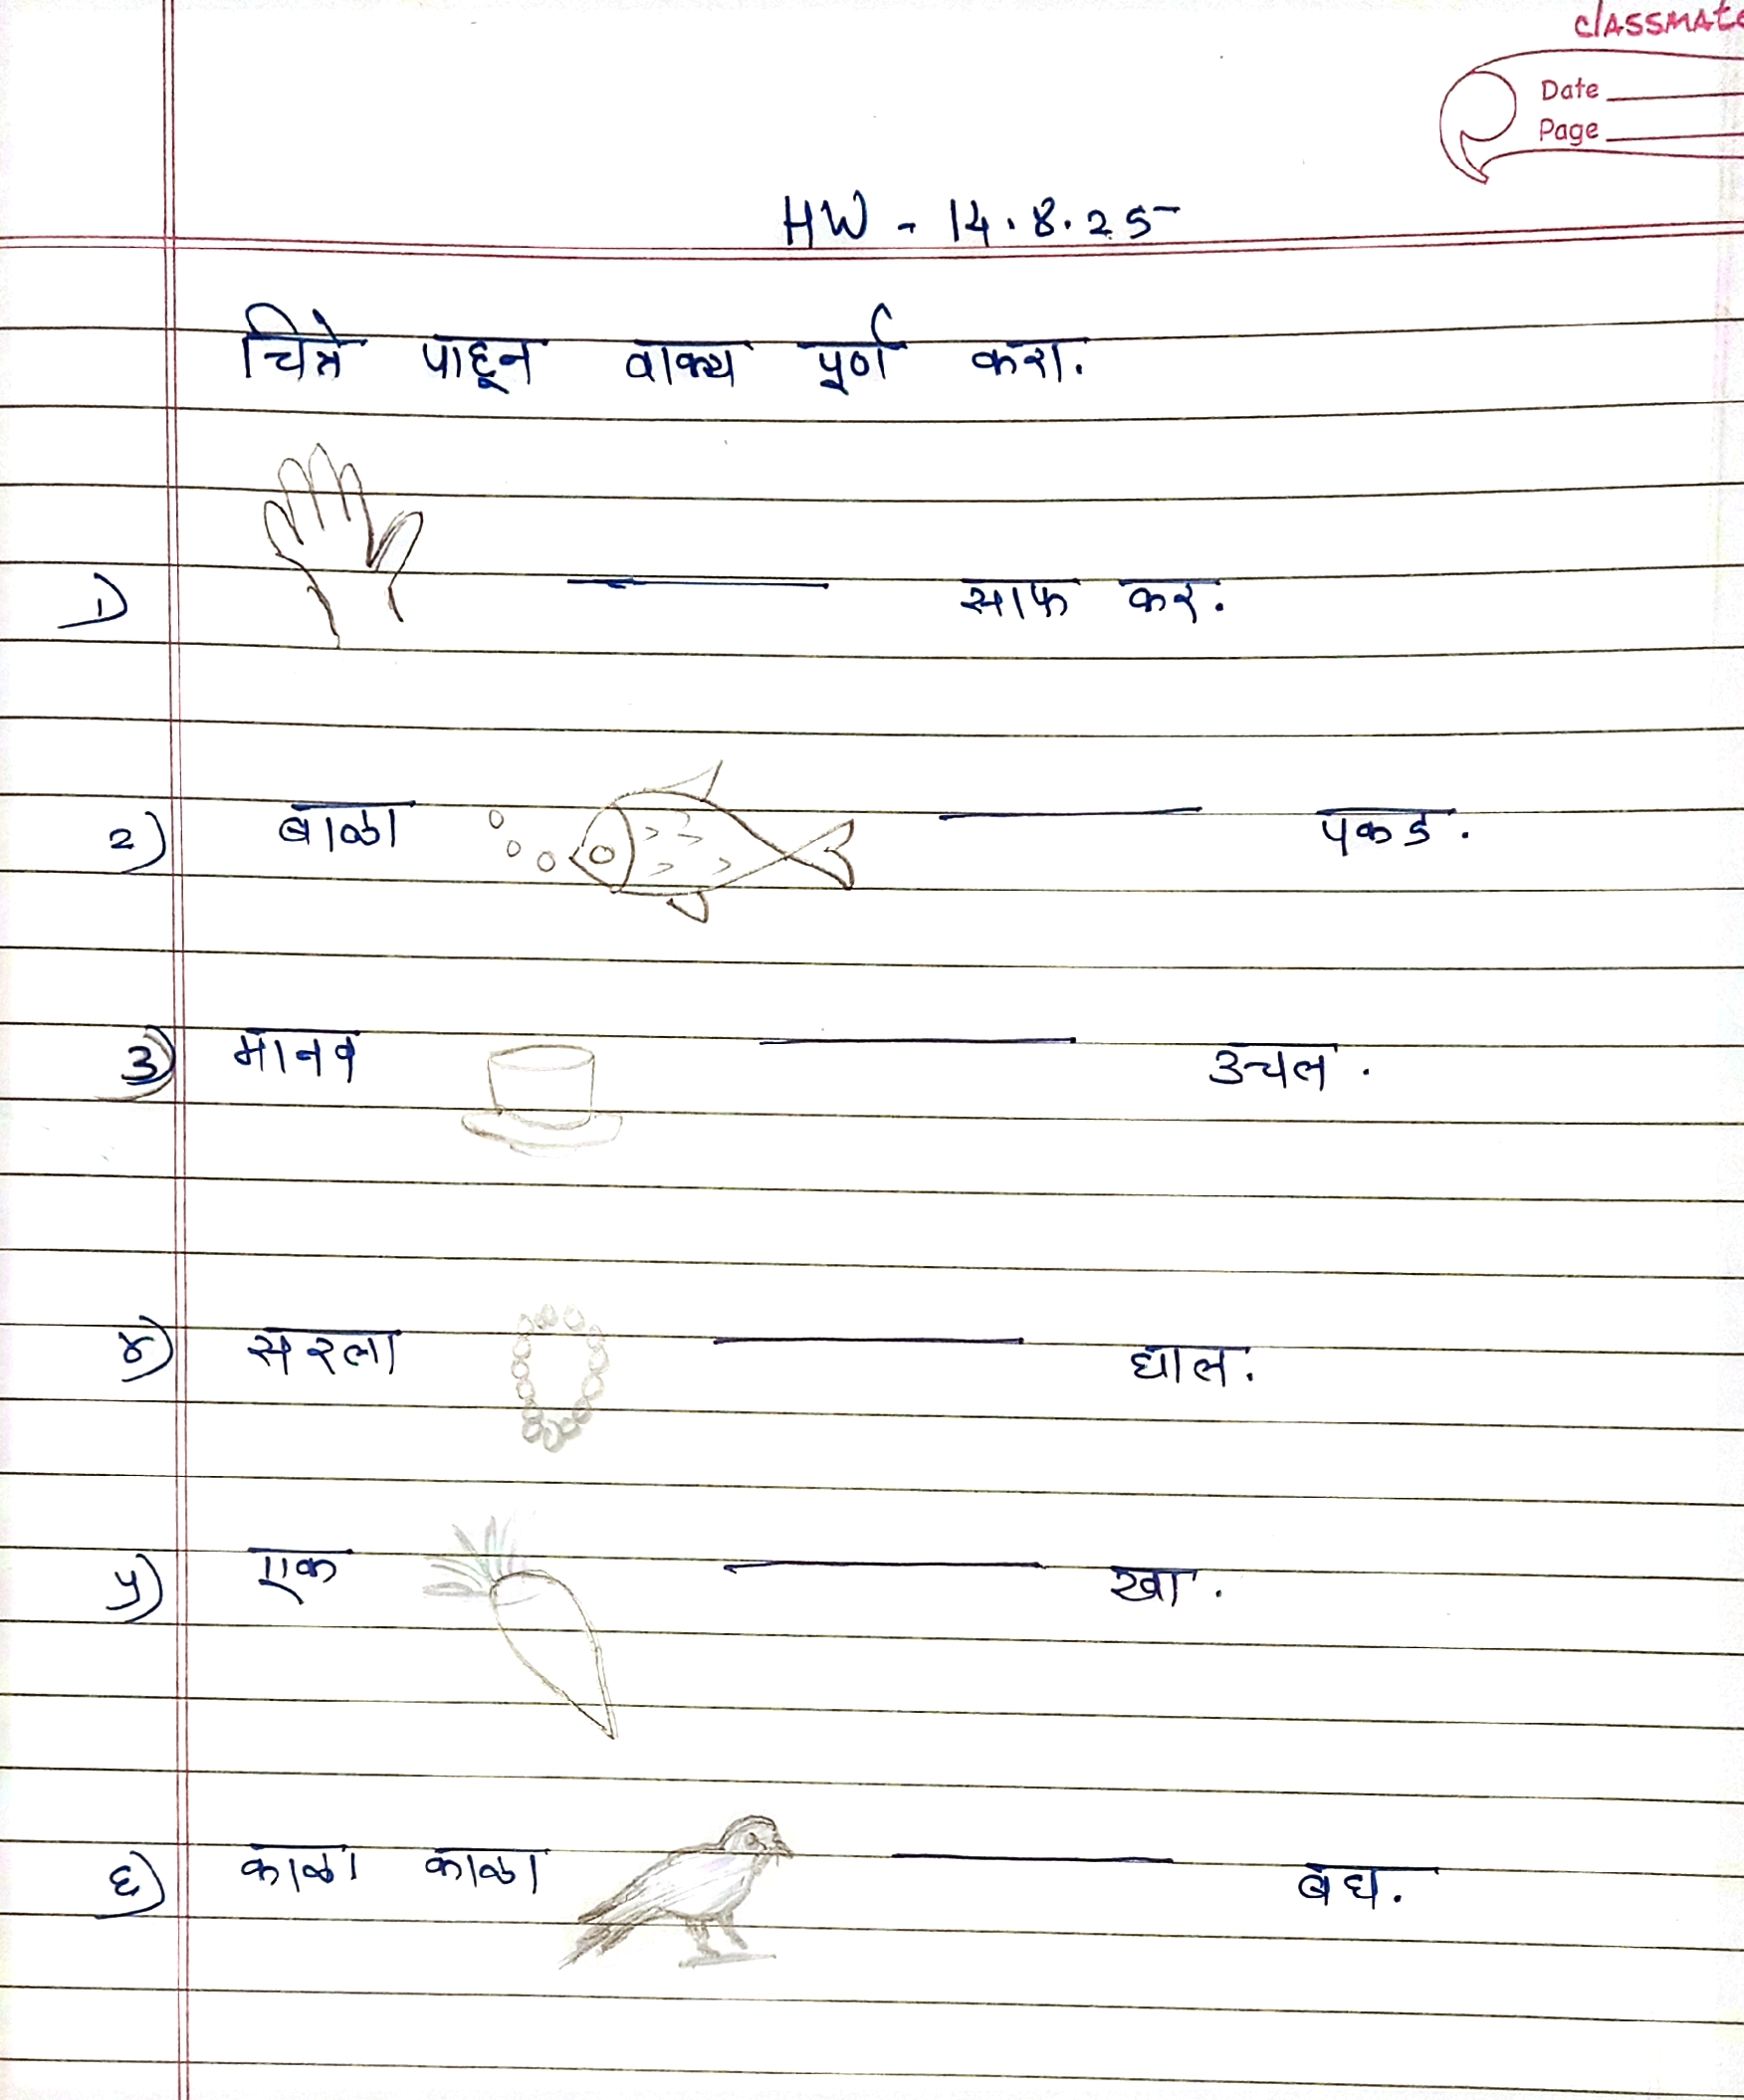 classmate
Date
Page
HW - 14.8.25
चित्रे पाहून वाक्य पूर्ण करा.
१) ______ साफ कर.
२) बाळा ______ पकड.
३) मानव ______ उचल.
४) सरला ______ घाल.
५) एक ______ खा.
६) काळा काळा ______ बघ.